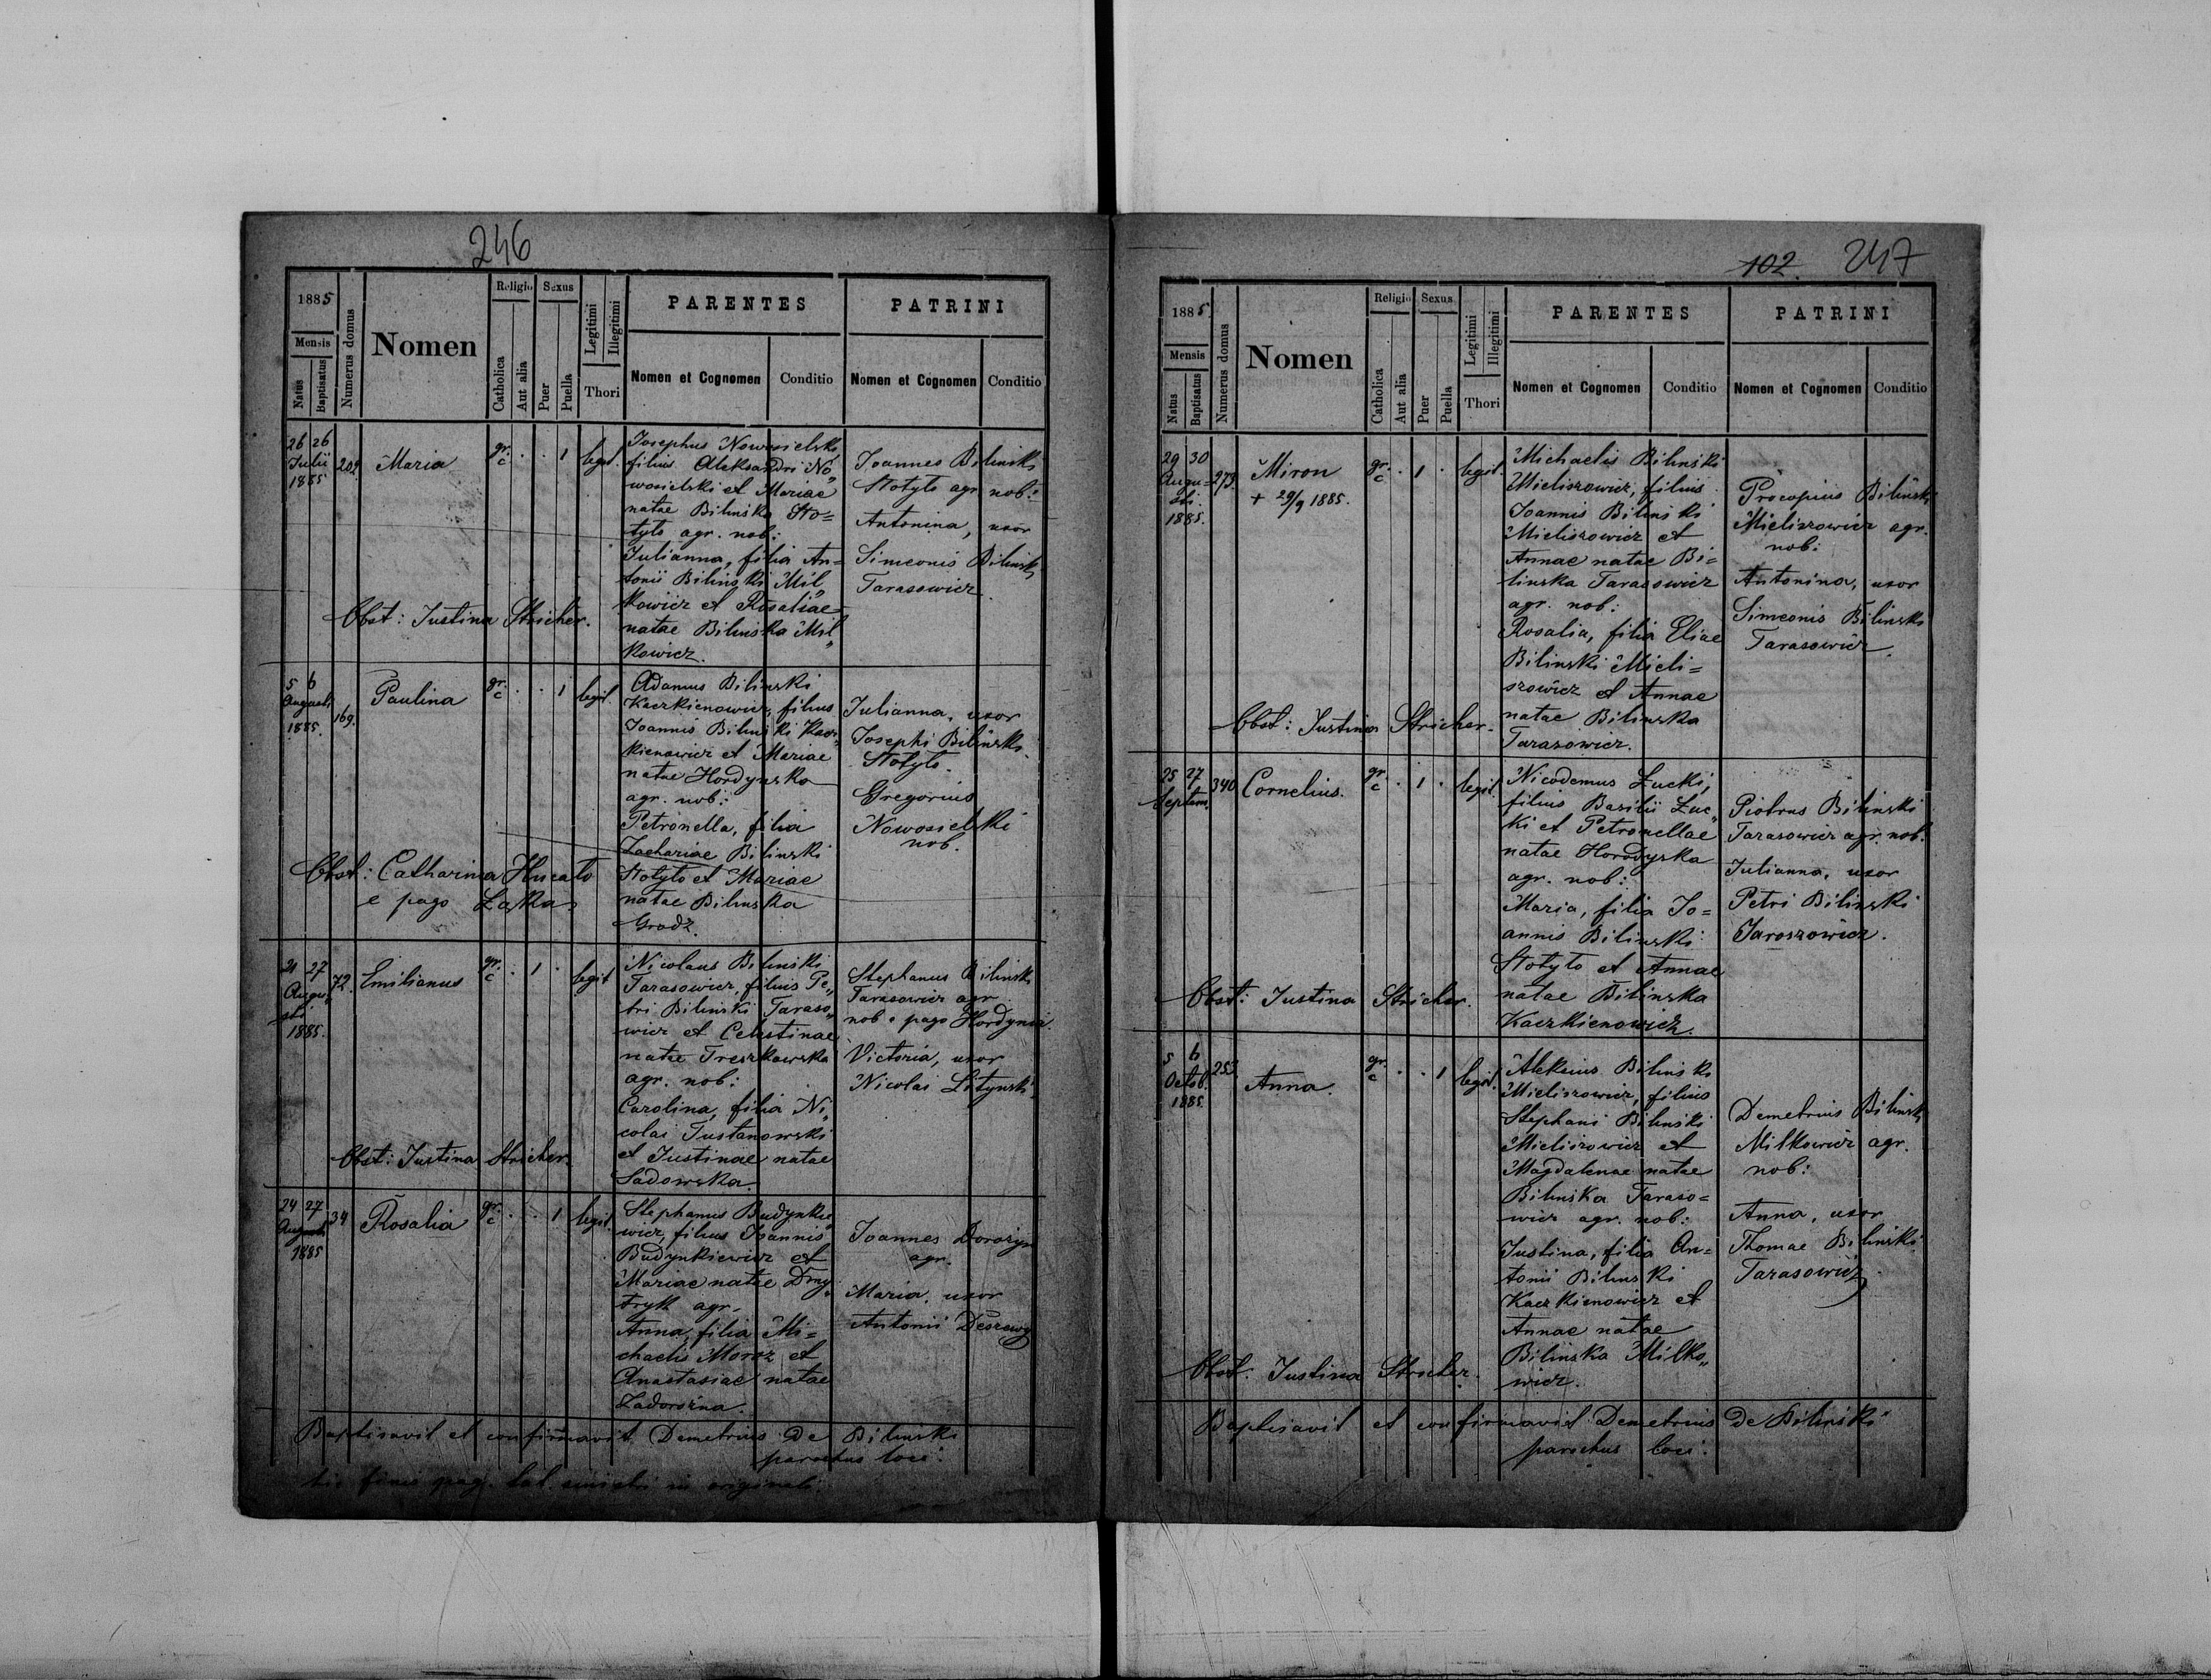 246
1885
Mensis
Natus
Baptisatus
Numerus domus
Nomen
Religio
Catholica
Aut alia
Sexus
Puer
Puella
Legitimi
Illegitimi
Thori
PARENTES
Nomen et Cognomen
Conditio
PATRINI
Nomen et Cognomen
Conditio
26 26
Julii
1885
209.
Maria
gr.
c
. . 1
legit.
Josephus Nowosielski
filius Aleksandri No„
wosielski et Mariae
natae Bilinska Sto=
tyto agr. nob:
Julianna, filia An=
tonii Bilinski Mil„
kowicz et Rosaliae
natae Bilinska Mil„
kowicz.
Joannes Bilinski
Stotyto agr nob:
Antonina, uxor
Simeonis Bilinski
Tarasowicz.
Obst: Justina Stricher.
5 6
Augusti
1885.
169.
Paulina
gr.
c
. . 1
legit.
Adamus Bilinski
Kaczkienowicz, filius
Joannis Bilinski Kacz„
kienowicz et Mariae
natae Hordynska
agr. nob:
Petronella, filia
Zachariae Bilinski
Stotyto et Mariae
natae Bilinska
Grodz.
Julianna, uxor
Josephi Bilinski
Stotyto.
Gregorius
Nowosielski
nob.
Obst: Catharina
e pago Łąka
21 27
Augu„
sti
1885.
72.
Emilianus
gr.
c
. 1 .
legit
Nicolaus Bilinski
Tarasowicz, filius Pe„
tri Bilinski Taraso„
wicz et Celestinae
natae Treszkowska
agr. nob:
Carolina, filia Ni„
colai Tustanowski
et Justinae natae
Sadowska.
Stephanus Bilinski
Tarasowicz agr
nob e pago Hordynia.
Victoria, uxor
Nicolai Litynski.
Obst: Justina Stricher.
24 27
Augusti
1885
34
Rosalia
gr.
c
. . 1
legit.
Stephanus Budynkie
wicz, filius Joannis
Budynkiewicz et
Mariae natae Dmy„
tryk agr.
Anna, filia Mi=
chaelis Moroz et
Anastasiae natae
Zadorożna.
Joannes Dorożyn
agr.
Maria, uxor
Antonii
Baptisavit et confirmavit Demetrius de Bilinski
parochus loci.
hic finis pag. lat. sinistri in originali
102. 247
1885.
Mensis
Natus
Baptisatus
Numerus domus
Nomen
Religio
Catholica
Aut alia
Sexus
Puer
Puella
Legitimi
Illegitimi
Thori
PARENTES
Nomen et Cognomen
Conditio
PATRINI
Nomen et Cognomen
Conditio
29 30
Augu=
sti.
1885.
273.
Miron
+ 29/9 1885.
gr.
c
. 1 .
legit.
Michaelis Bilinski
Mieliszowicz, filius
Joannis Bilinski
Mieliszowicz et
Annae natae Bi=
linska Tarasowicz
agr. nob:
Rosalia, filia Eliae
Bilinski Mieli=
szowicz et Annae
natae Bilinska
Tarasowicz.
Procopius Bilinski
Mieliszowicz agr.
nob:
Antonina, uxor
Simeonis Bilinski
Tarasowicz.
Obst: Justina Stricher.
25 27
Septem.
340
Cornelius.
gr.
c
. 1 .
legit.
Nicodemus Łucki,
filius Basilii Łuc„
ki et Petronellae
natae Horodyska
agr. nob:
Maria, filia Jo=
annis Bilinski
Stotyto et Annae
natae Bilinska
Kaczkienowicz.
Piotrus Bilinski
Tarasowicz agr. nob:
Julianna, uxor
Petri Bilinski
Jaroszowicz.
Obst: Justina Stricher.
5 6
Octob.
1885.
253.
Anna.
gr.
c
. . 1
legit.
Aleksius Bilinski
Mieliszowicz, filius
Stephani Bilinski
Mieliszowicz et
Magdalenae natae
Bilinska Taraso=
wicz agr. nob:
Justina, filia An=
tonii Bilinski
Kaczkienowicz et
Annae natae
Bilinska Milko„
wicz.
Demetrius Bilinski
Milkowicz agr.
nob:
Anna, uxor
Thomae Bilinski
Tarasowicz.
Obst. Justina Stricher.
Baptisavit et confirmavit Demetrius de Bilinski
parochus loci.